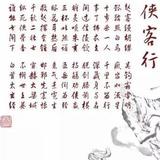 俠客行
趙客縵胡纓 吳鉤霜雪明
銀鞍照白馬 颯沓如流星
十步殺一人 千里不留行
事了拂衣去 深藏身與名
閑過信陵飲 脫劍膝前橫
將炙啖朱亥 持觴勸侯嬴
三杯吐然諾 五嶽倒為輕
眼花耳熱後 意氣素霓生
救趙揮金槌 邯鄲先震驚
千秋二壯士 烜赫大梁城
縱死俠骨香 不慚世上英
誰能書閣下 白首太玄經